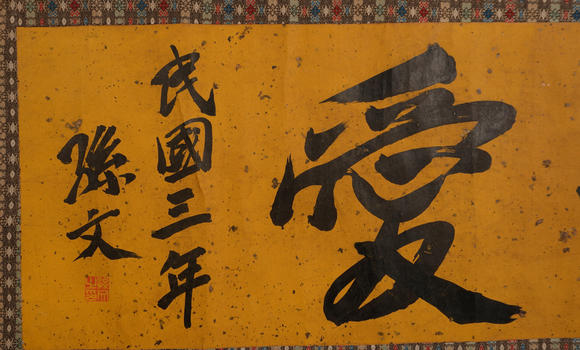 愛
民國三年
孫文